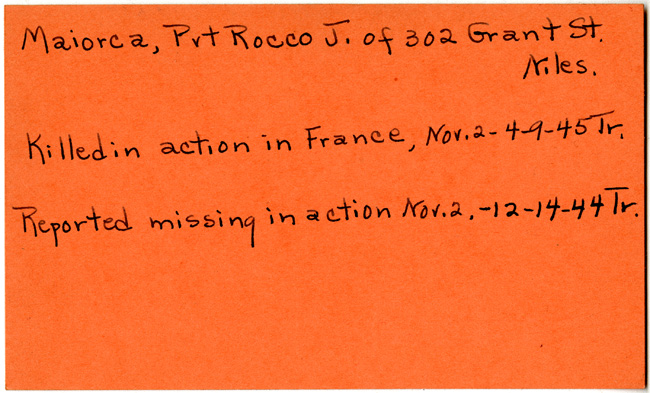 Maiorca, Pvt Rocco J. of 302 Grant St.
Niles.
Killed in action in France, Nov. 2 - 4-9-45 Tr.
Reported missing in action Nov. 2, -12-14-44 Tr.